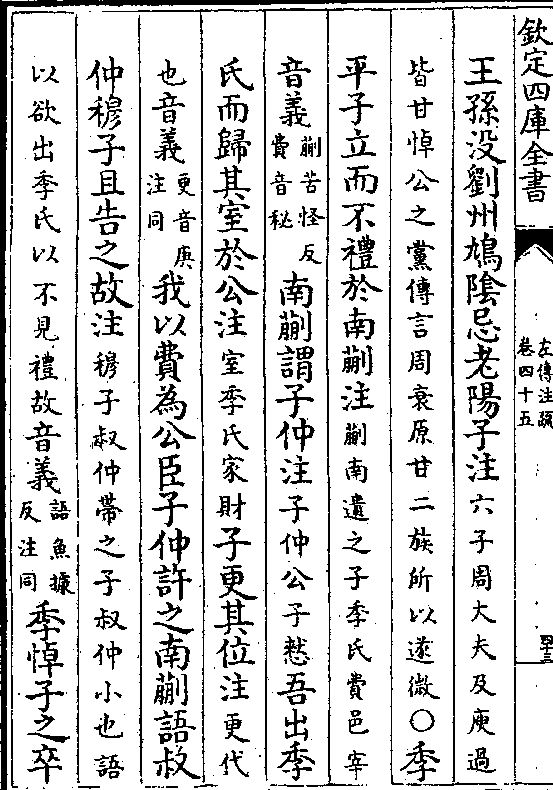 欽定四庫全書
左傳注疏
卷四十五
王孫没劉州鳩陰忌老陽子注六子周大夫及庾過
皆甘悼公之黨傳言周衰原甘二族所以遂微○季
平子立而不禮於南蒯注蒯南遺之子季氏費邑宰
音義蒯苦怪反費音秘南蒯謂子仲注子仲公子憖吾出季
氏而歸其室於公注室季氏家財子更其位注更代
也音義更音庚注同我以費為公臣子仲許之南蒯語叔
仲穆子且告之故注穆子叔仲帶之子叔仲小也語
以欲出季氏以不見禮故音義語魚據反注同季悼子之卒